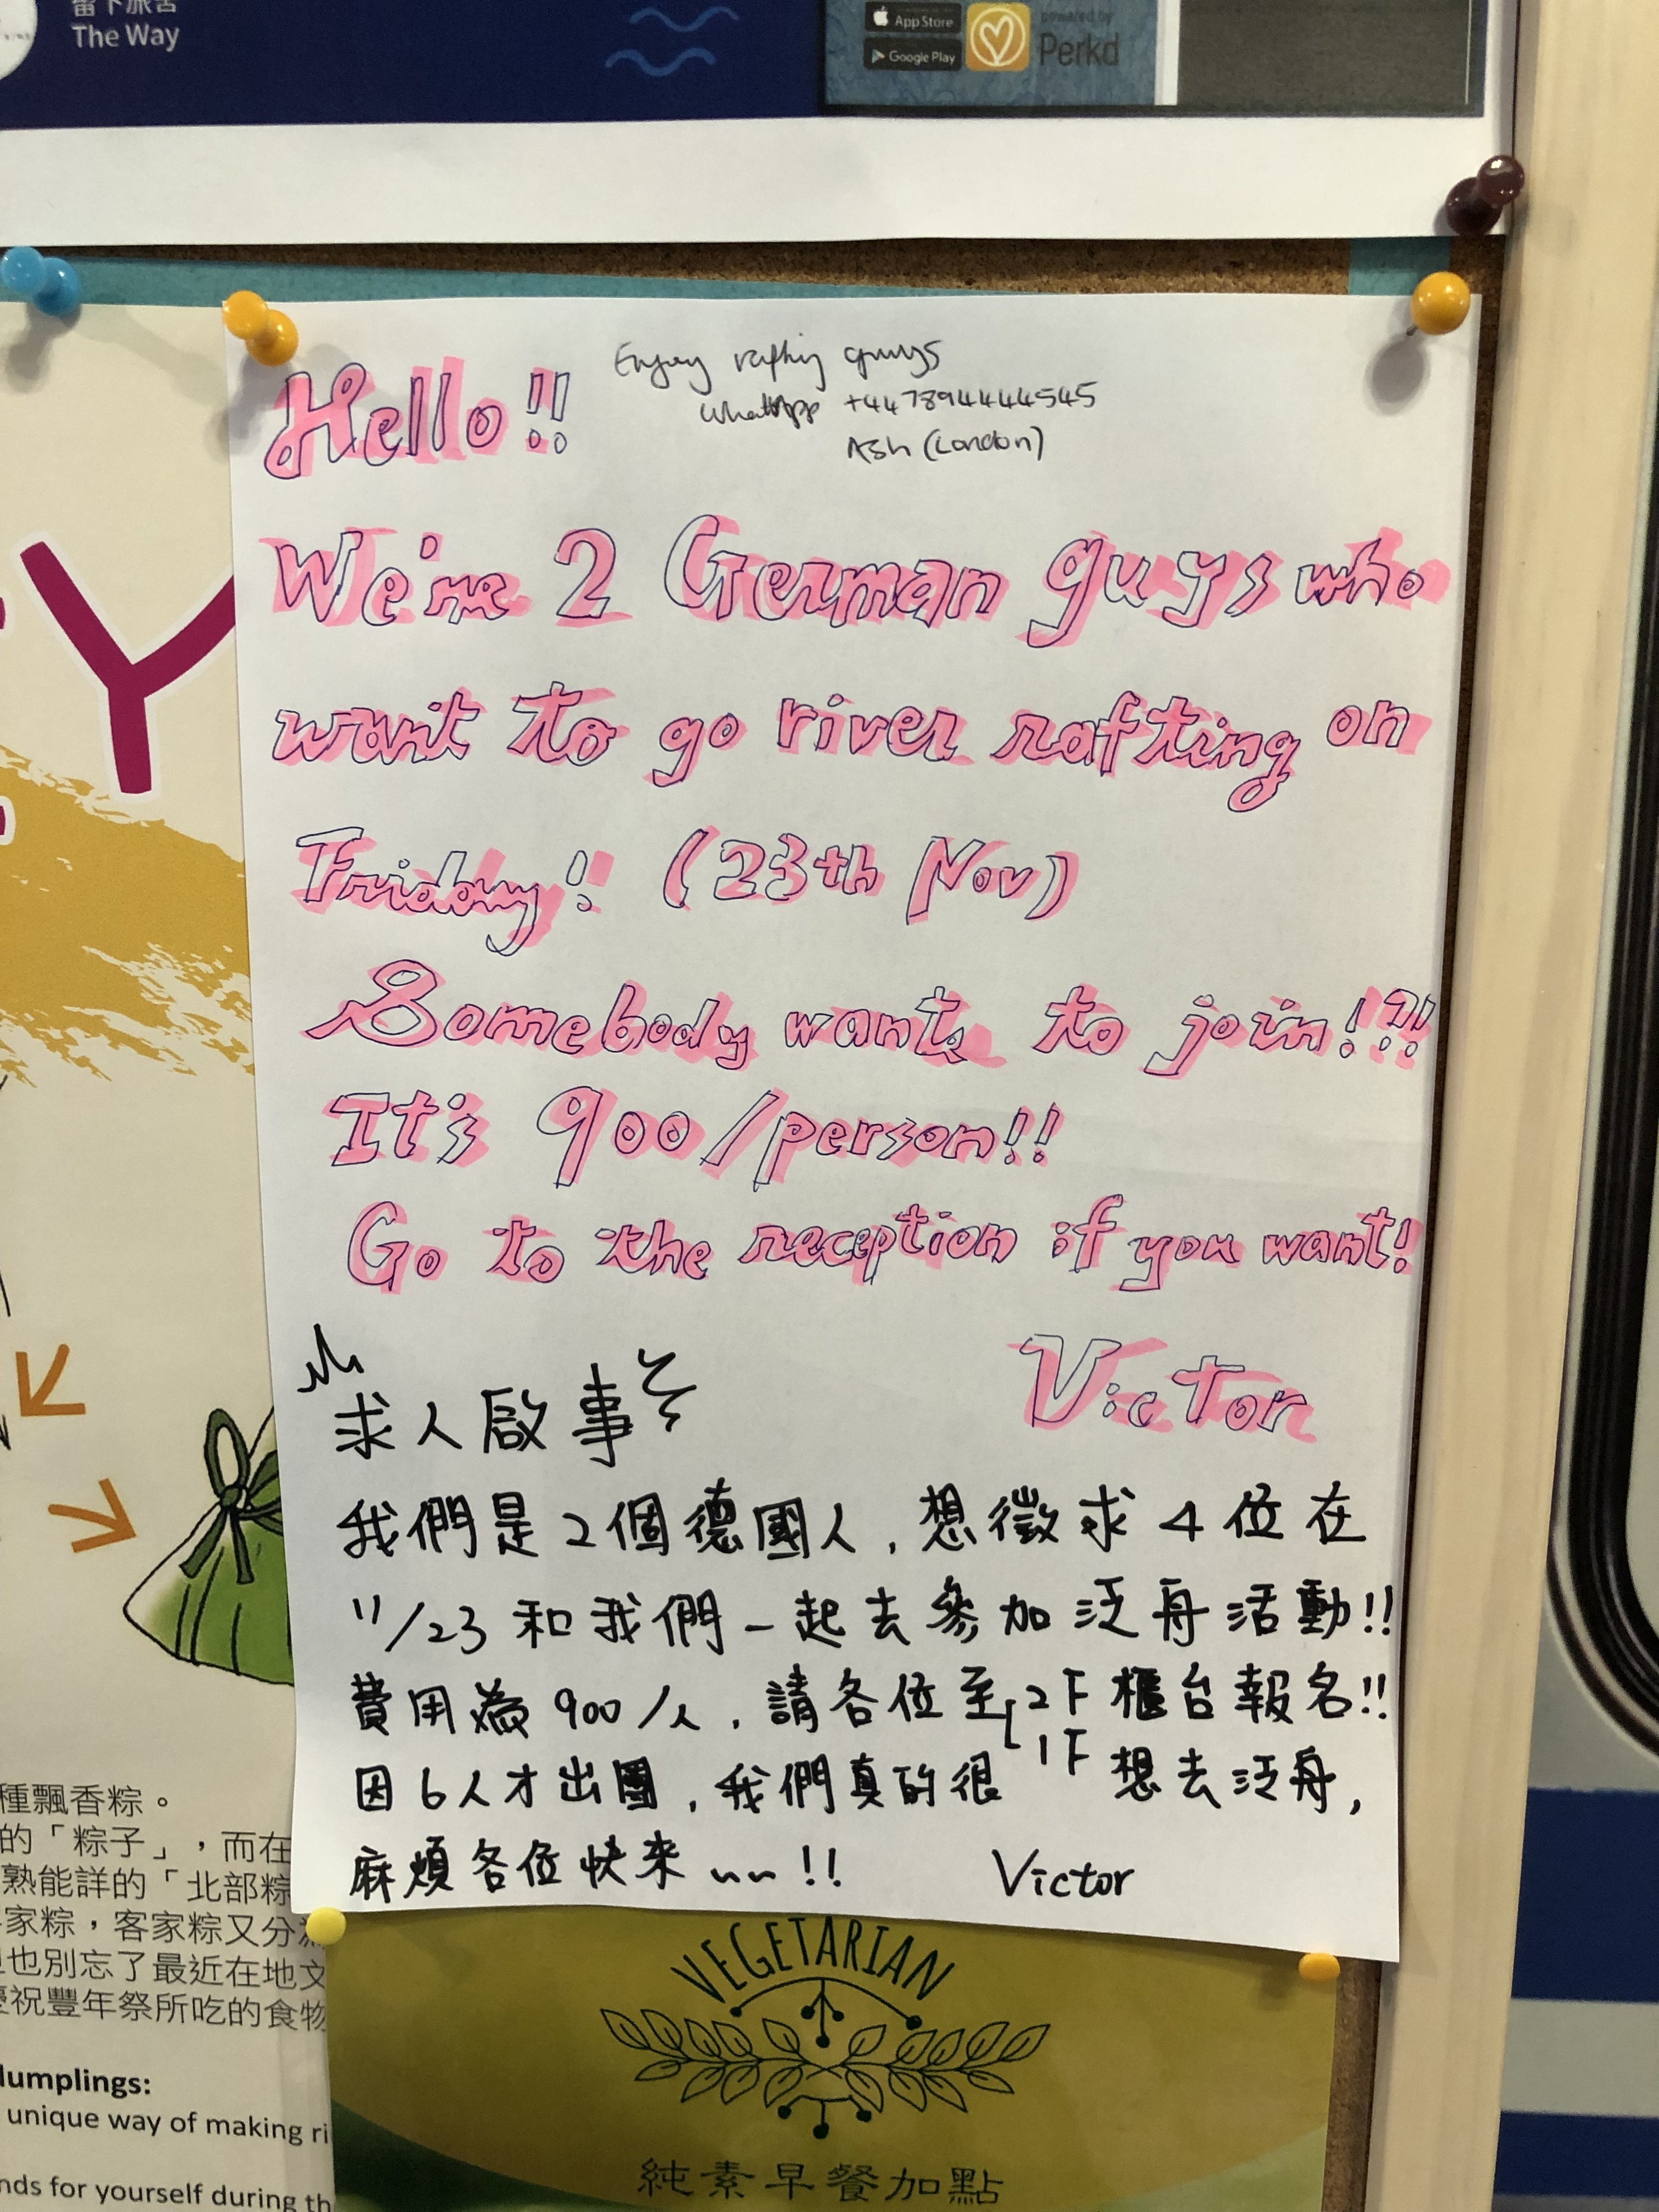 The Way
App Store
Google Play
powered by
Perkd
Hello!!
Enjoy rafting guys
WhatsApp +447894444545
Ash (London)
We're 2 German guys who
want to go river rafting on
Friday!! (23th Nov)
Somebody wants to join!?!
It's 900/person!!
Go to the reception if you want!
Victor
求人啟事
我們是2個德國人,想徵求4位在
11/23和我們一起去參加泛舟活動!!
費用為900/人,請各位至2F櫃台報名!!
1F
因6人才出團,我們真的很想去泛舟,
麻煩各位快來~~!!
Victor
種飄香粽。
的「粽子」,而在
熟能詳的「北部粽
家粽,客家粽又分
也別忘了最近在地文
慶祝豐年祭所吃的食物
dumplings:
unique way of making ri
nds for yourself during th
VEGETARIAN
純素早餐加點